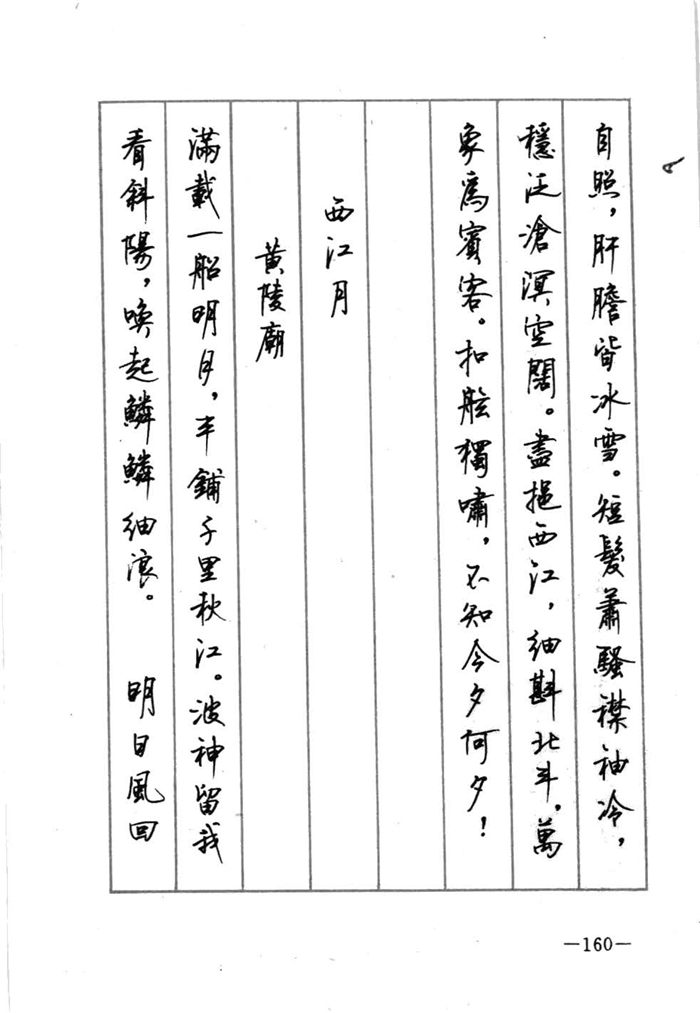 自照，肝膽皆冰雪。短髮蕭騷襟袖冷，
穩泛滄溟空闊。盡挹西江，細斟北斗，萬
象為賓客。扣舷獨嘯，不知今夕何夕！
西江月
黄陵廟
滿載一船明月，平鋪千里秋江。波神留我
看斜陽，喚起鱗鱗細浪。　明日風回
—160—